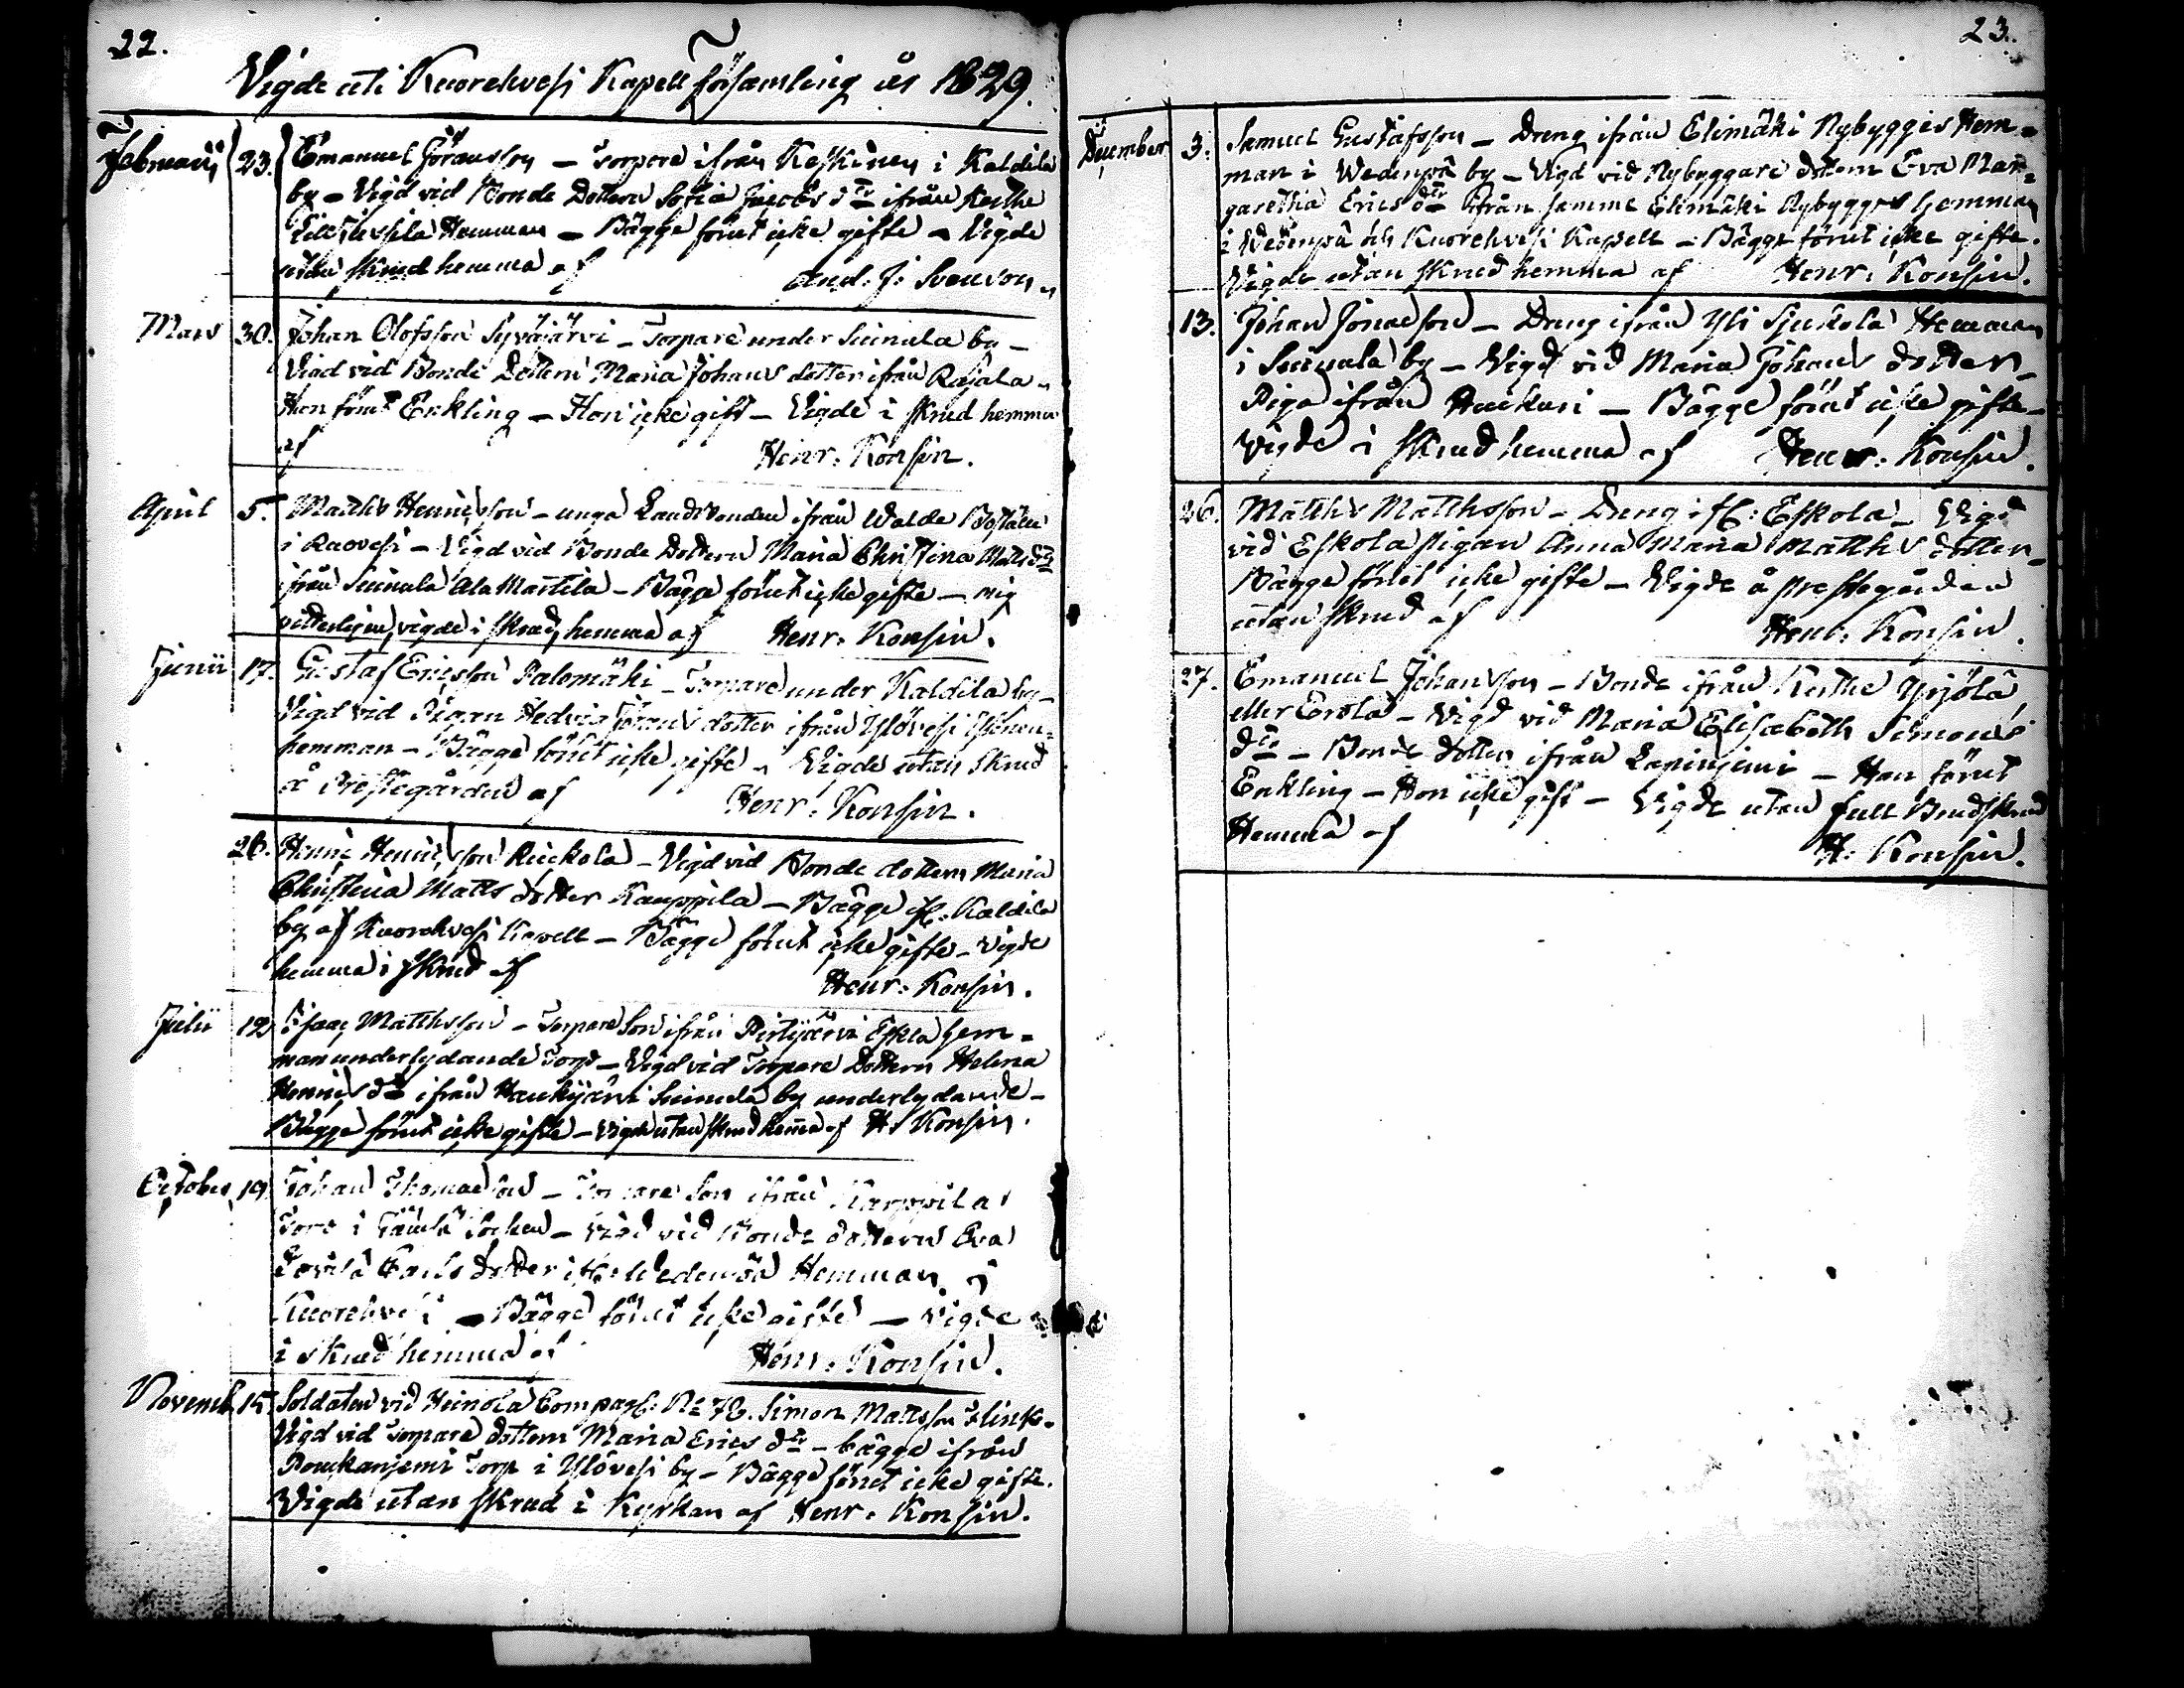 22.
Vigde uti Kuorehvesi Kapell församling år 1829.
Februarii 23. Emanuel Göransson – Torpare ifrån Keskinen i Kaldila
by – Vigd vid Bonde Dottern Sofia Jacobs dtr ifrån Keithe
Hemman – Bägge förut icke gifte – Vigde
utan skrud hemma af And. J. Svenson
Mars 30. Johan Olofsson Syväjärvi – Torpare under Suinula by –
Viad vid Bonde Dottern Maria Johans dotter ifrån Rajala –
Han förut Enkling – Hon icke gift – Vigde i skrud hemma
af Henr: Konsin.
April 5. Matths Henricsson – unga Landbonden ifrån Walde Boställe
i Raovesi – Vigd vid Bonde Dottern Maria Christina Matts dtr
ifrån Suinula Ala Marttila – Bägge förut icke gifte – mig
vitterligen, vigde i skrud hemma af Henr: Konsin.
Junii 17. Gustaf Ericsson Palomäki – Torpare under Kaldila by –
Vigd vid Pigan Hedvig Görans dotter ifrån Ylövesi
hemman – Bägge förut icke gifte – Vigde utan skrud
å Prestegården af Henr: Konsin.
26. Henric Henricsson Ruckola – Vigd vid Bonde dottern Maria
Christina Matts dotter Kauppila – Bägge ifr: Kaldila
by af Kuorehvesi Kapell – Bägge förut icke gifte – vigde
hemma i skrud af Henr: Konsin.
Julii 12 Isaac Matthsson – Torpare Son ifrån Pirttijärvi Eskla hem=
man underlydande Torp – Vigd vid Torpare Dottern Helena
Henrics dtr ifrån Haukijärvi Suinula by underlydande –
Bägge förut icke gifte – vigde utan skrud hemma af H. Konsin.
October 19. Johan Thomasson – Torpare Son ifrån Karppila
Torp i Jämsä Socken – Vigd vid Bonde dottern Eva
Lovisa Carls dotter ifr: Wedenpää Hemman i
Kuorehvesi – Bägge förut icke gifte – Vigde
i skrud hemma af Henr: Konsin.
Novemb. 15. Soldaten vid Heinola Compag: No 76. Simon Mattsson Flink.
Vigd vid Torpare dottern Maria Erics dtr – bägge ifrån
Poukanjemi Torp i Ylövesi by – Bägge förut icke gifte.
Vigde utan skrud i Kyrkan af Henr: Konsin.
23.
December 3. Samuel Gustafsson – Dreng ifrån Elimäki Nybygges Hem=
man i Wedenpä by – Vigd vid Nybyggare dottern Eva Mar=
garetha Erics dtr ifrån samma Elimäki Nybygges hemman
i Wedenpä och Kuorehvesi Kapell – Bägge förut icke gifte.
Vigde utan skrud hemma af Henr: Konsin.
13. Johan Jonaesson – Dreng ifrån Yli Sjukola Hemman
i Suinula by – Vigd vid Maria Johans dotter –
Piga ifrån Haukuri – Bägge förut icke gifte –
Vigde i skrud hemma af Henr: Konsin.
26. Matths Matthsson – Dreng ifr: Eskola – Vigd
vid Eskola pigan Anna Maria Matths dotter –
Bägge förut icke gifte – Vigde å prestegården
utan skrud af Henr: Konsin.
27. Emanuel Johansson – Bonde ifrån Keithe Yrjölä
eller Eerola – Vigd vid Maria Elisabeth Simons
dtr – Bonde dotter ifrån Lapinjemi – Han förut
Enkling – Hon icke gift – Vigde utan full Brudskrud
Hemma af H: Konsin.